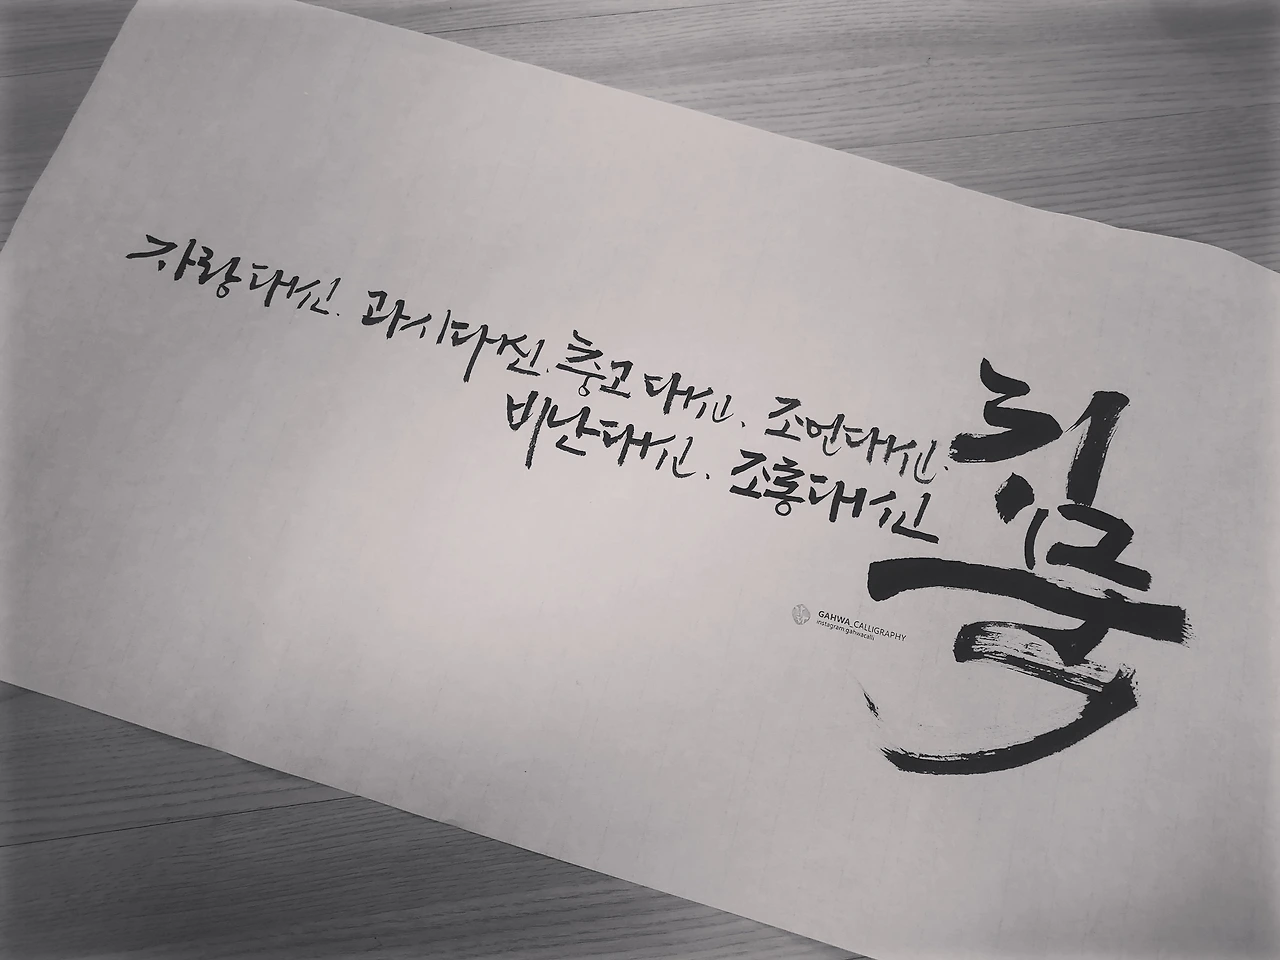 자랑대신. 과시대신. 충고대신. 조언대신.
비난대신. 조롱대신
침묵
GAHWA_CALLIGRAPHY
instagram:gahwacalli